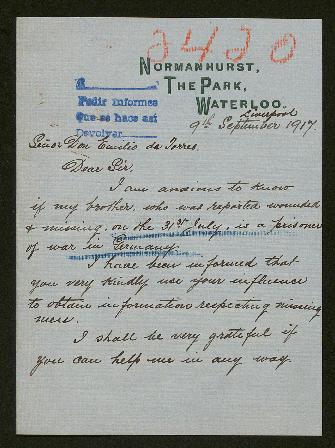 2420
NORMANHURST,
THE PARK,
WATERLOO.
Liverpool
A
Pedir informes
Que se hace así
Devolver
9th September 1917.
Señor Don Emilio de Torres.
Dear Sir,
I am anxious to know
if my brother, who was reported wounded
& missing, on the 31st July, is a prisoner
of war in Germany.
I have been informed that
you very kindly use your influence
to obtain information respecting missing
men.
I shall be very grateful if
you can help me in any way.